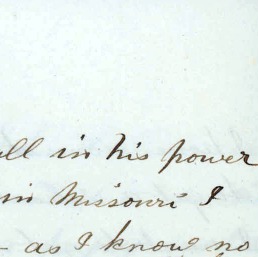 all in his power
in Missouri I
- as I know no